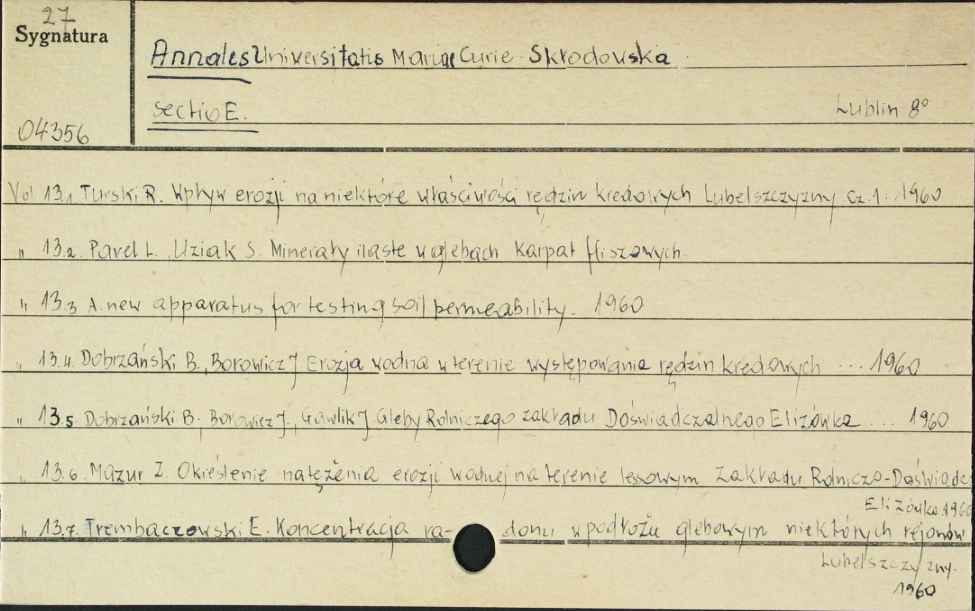 27
Sygnatura
Annales Universitatis Mariae Curie-Skłodovska
sectio E.
Lublin 8°
04356
Vol 13.1 Turski R. Wpływ erozji na niektóre właściwości rędzin kredowych Lubelszczyzny cz. 1... 1960
" 13.2. Pavel L., Uziak S. Minerały ilaste w glebach Karpat fliszowych.
" 13.3 A. new apparatus for testing soil permeability. 1960
" 13.4. Dobrzański B., Borowicz J Erozja wodna w terenie występowania rędzin kredowych ... 1960
" 13.5 Dobrzański B. Borowicz J., Gawlik J Gleby Rolniczego zakładu Doświadczalnego Elizówka ... 1960
" 13.6. Mazur Z Określenie natężenia erozji wodnej na terenie lessowym Zakładu Rolniczo-Doświadc
Elizówka 1960
" 13.7. Trembaczowski E. Koncentracja ra- donu w podłożu glebowym niektórych rejonów
Lubelszczyzny.
1960